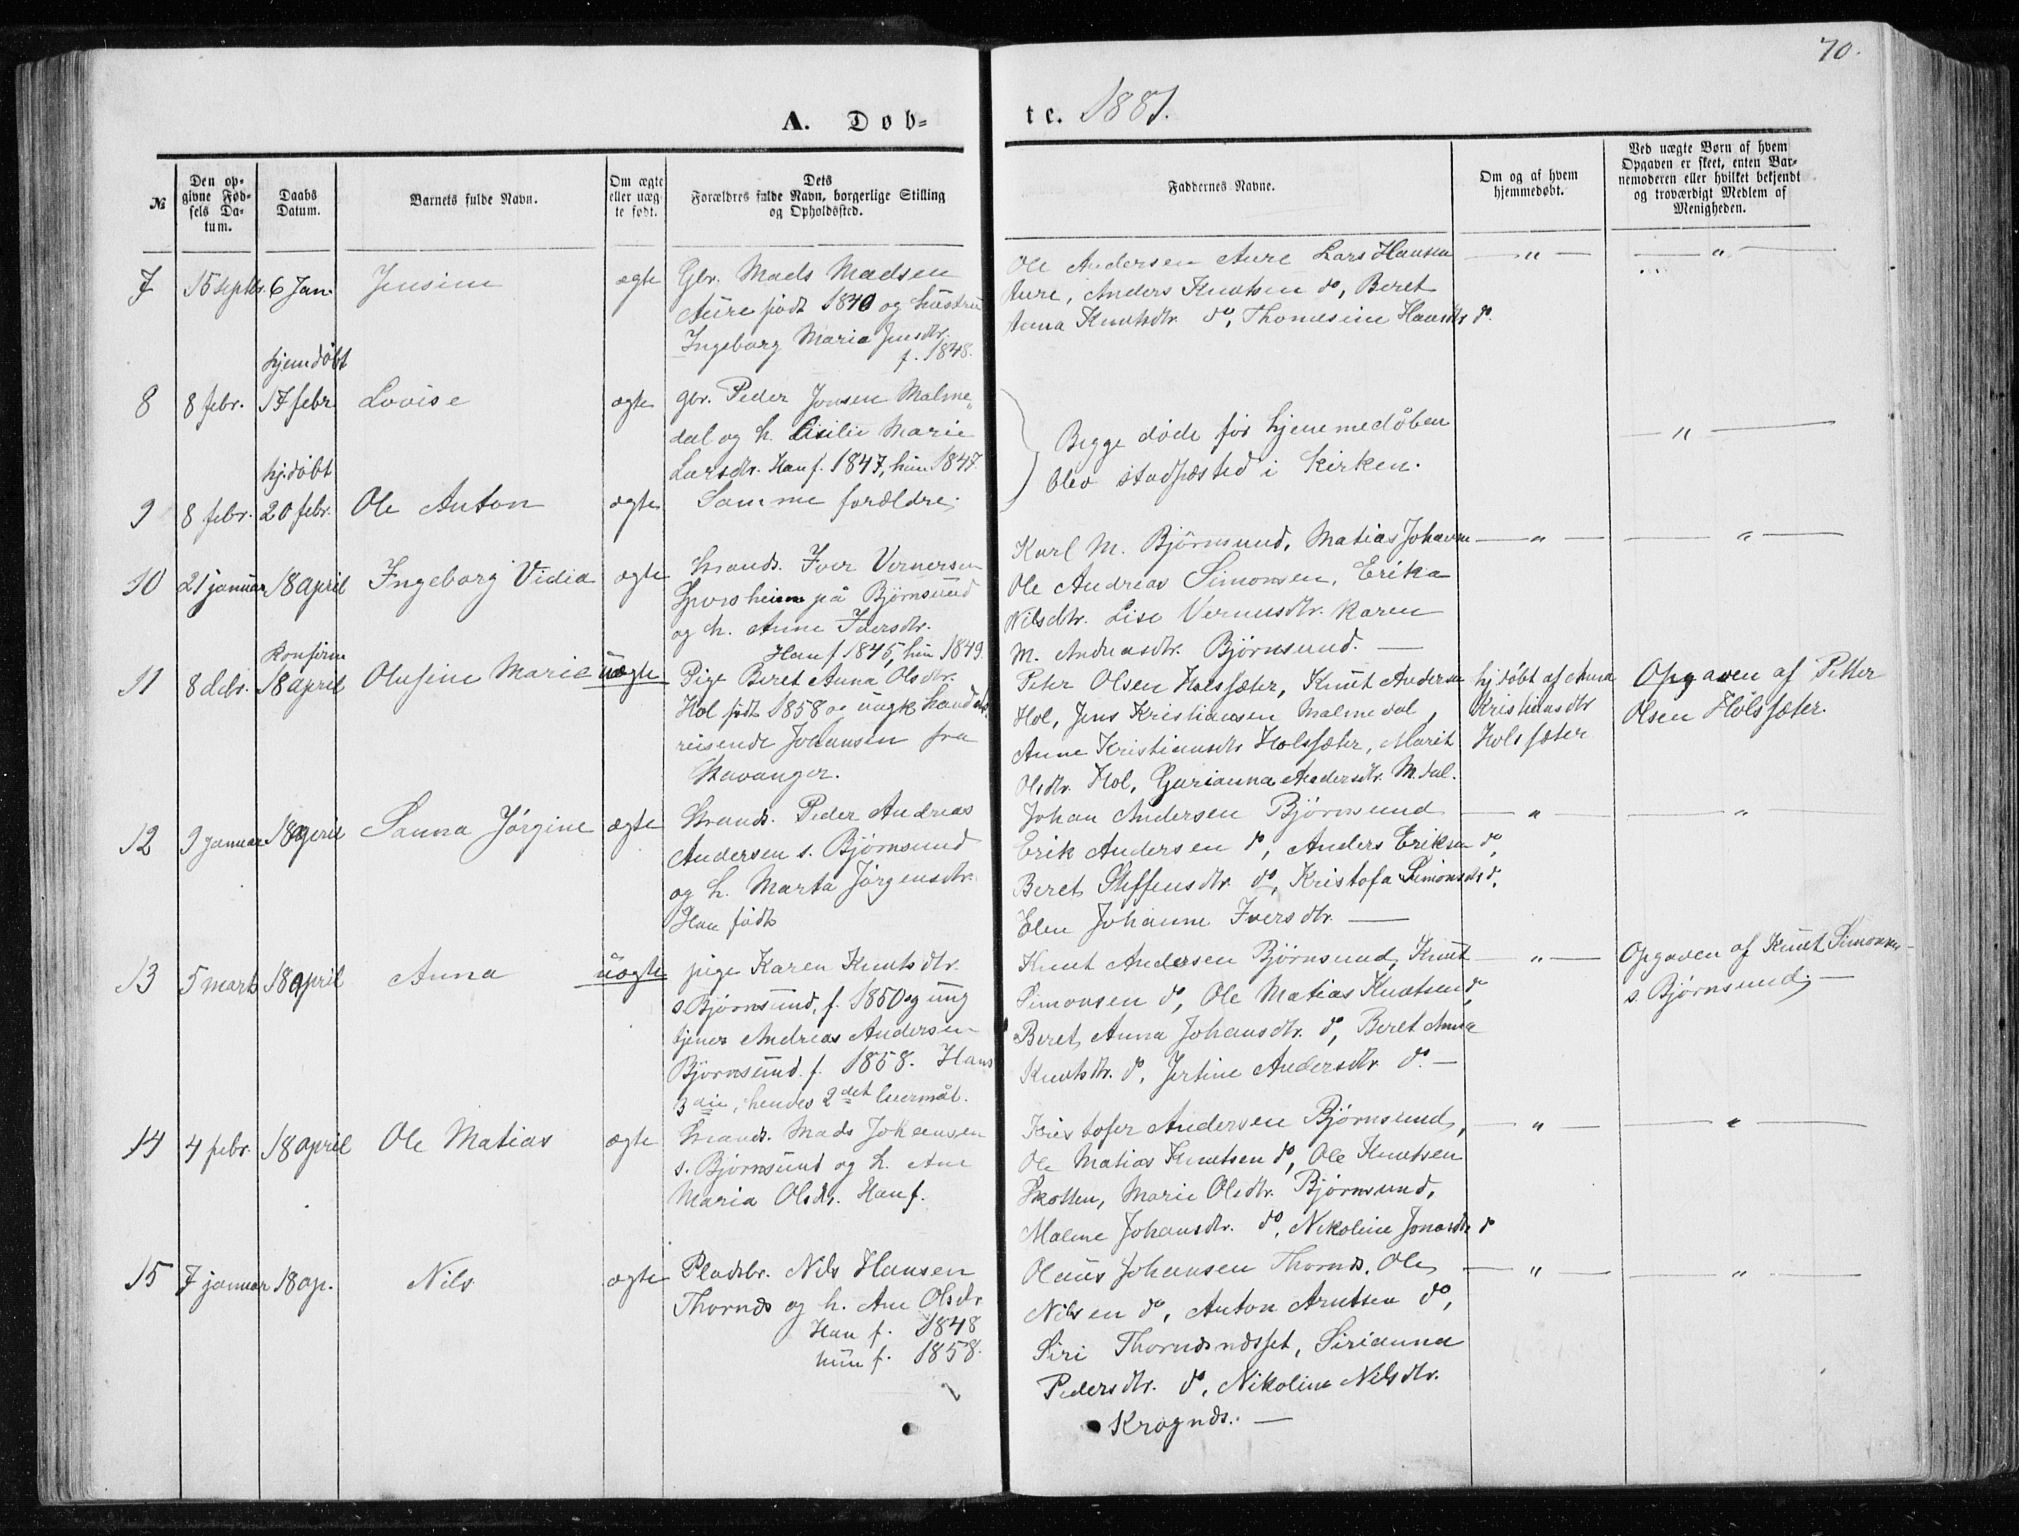 70.
A. Døb=
te. 1881.
№
Den op-
givne Fød-
sels Da-
tum.
Daabs
Datum.
Barnets fulde Navn.
Om ægte
eller uæg-
te født.
Dets
Forældres fulde Navn, borgerlige Stilling
og Opholdssted.
Faddernes Navne.
Om og af hvem
hjemmedøbt.
Ved uægte Børn af hvem
Opgaven er skeet, enten Bar-
nemoderen eller hvilket bekjendt
og troværdigt Medlem af
Menigheden.
7 15 septbr. 6 Jan. Jensine ægte Gbr. Mads Madsen
Aure født 1840 og hustru
Ingeborg Maria Jensdtr.
f. 1848.
Ole Andersen Aure Lars Hansen — " — — " —
Aure, Anders Knutsen do, Beret
Anna Knutsdtr. do, Thomesine Hansdtr do.
hjemdøbt
8 8 febr. 17 febr. Lovise ægte gbr. Peder Jonsen Malme„
dal og h. Cisilie Marie
Larsdtr. Han f. 1847, hun 1847.
Begge døde før hjemmedøben — " —
blev stadfæsted i Kirken.
hj.døbt
9 8 febr. 20 febr. Ole Anton ægte Samme forældre.
10 21 januar 18 april Ingeborg Vidia ægte Strands. Iver Vernersen
på Bjørnsund
og h. Anne Iversdtr.
Han f 1845, hun 1849.
Karl M. Bjørnsund, Matias Johansen — " — — " —
Ole Andreas Simonsen, Erika
Nilsdtr. Lise Vernersdtr. Karen
M. Andreasdtr. Bjørnsund. —
konfirm
11 8 dcbr. 18 april Olufine Marie uægte Pige Beret Anna Olsdtr.
Hol født 1858 og ungk. handels
reisende Johansen fra
Stavanger.
Peter Olsen Holssæter, Knut Andersen hjdøbt af Anna Opgaven af Petter
Hol, Jens Kristiansen Malmedal, Kristiansdtr Olsen Holssæter.
Anne Kristiansdtr Holssæter, Marit Holssæter
Olsdtr. Hol, Gurianna Andersdtr. Mdal.
12 9 januar 18 april Sanna Jørgine ægte Strands. Peder Andreas
Andersen s. Bjørnsund
og h. Marta Jørgensdtr.
Han født
Johan Andersen Bjørnsund — " — — " —
Erik Andersen do, Anders Eriksen do,
Beret Steffensdtr. do, Kristofa Simonsdtr do,
Elen Johanne Iversdtr. —
13 5 marts 18 april Anna uægte pige Karen Knutsdtr.
s Bjørnsund, f. 1850 og ung
tjener Andreas Andersen
Bjørnsund f. 1858. Hans
3die, hendes 2det leiermål.
Knut Andersen Bjørnsund, Knut — " — Opgaven af Knut Simonsen
Simonsen do, Ole Matias Knutsen do, s. Bjørnsund. —
Beret Anna Johansdtr. do, Beret Anna
Knutsdtr. do, Jertine Andersdtr do. —
14 4 febr. 18 april Ole Matias ægte Strands. Mads Johansen
s. Bjørnsund og h. Ane
Maria Olsdtr. Han f.
Kristofer Andersen Bjørnsund, — " — — " —
Ole Matias Knutsen do, Ole Knutsen
Skotten, Marie Olsdtr. Bjørnsund,
Malene Johansdtr. do, Nikoline Jonasdtr do
15 7 januar 18 ap. Nils ægte Pladsbr. Nils Hansen
Thornæs og h. Ane Olsdtr
Han f. 1848
hun f. 1858.
Olaus Johansen Thornæs, Ole — " — — " —
Nilsen do, Anton Arntsen do,
Siri Thornæsnæsset, Sirianna
Pedersdtr. do, Nikoline Nilsdtr.
Krognæs. —